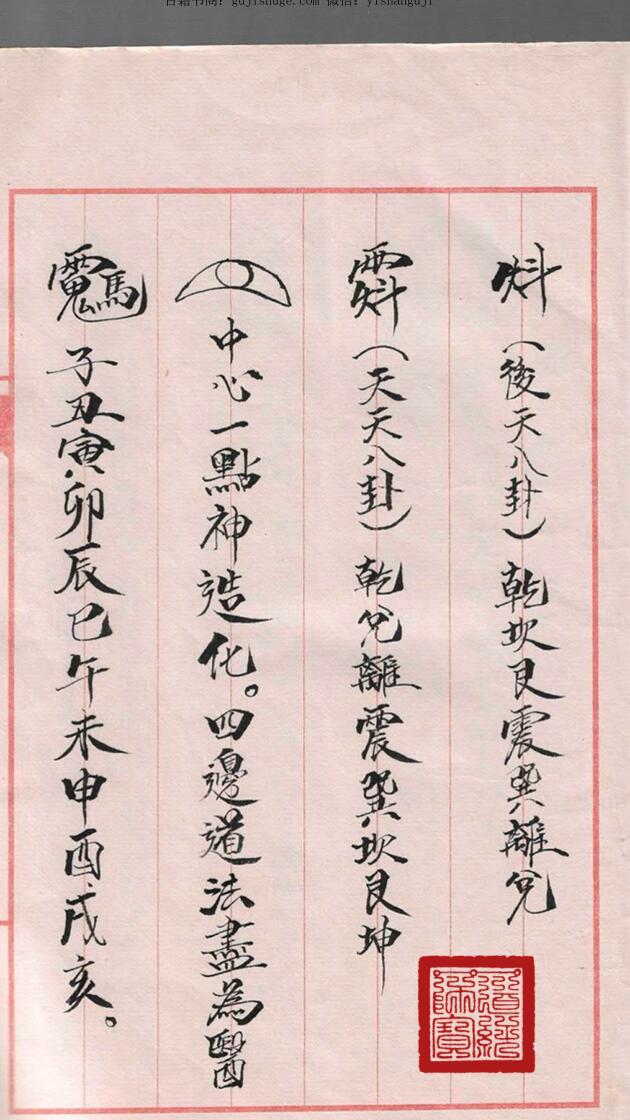 古籍书阁：gujishuge.com 微信：yishanguji
（後天八卦）乾坎艮震巽離兌
（天天八卦）乾兌離震巽坎艮坤
中心一點神造化。四邊道法盡為醫
子丑寅卯辰巳午未申酉戌亥。
道經師寶